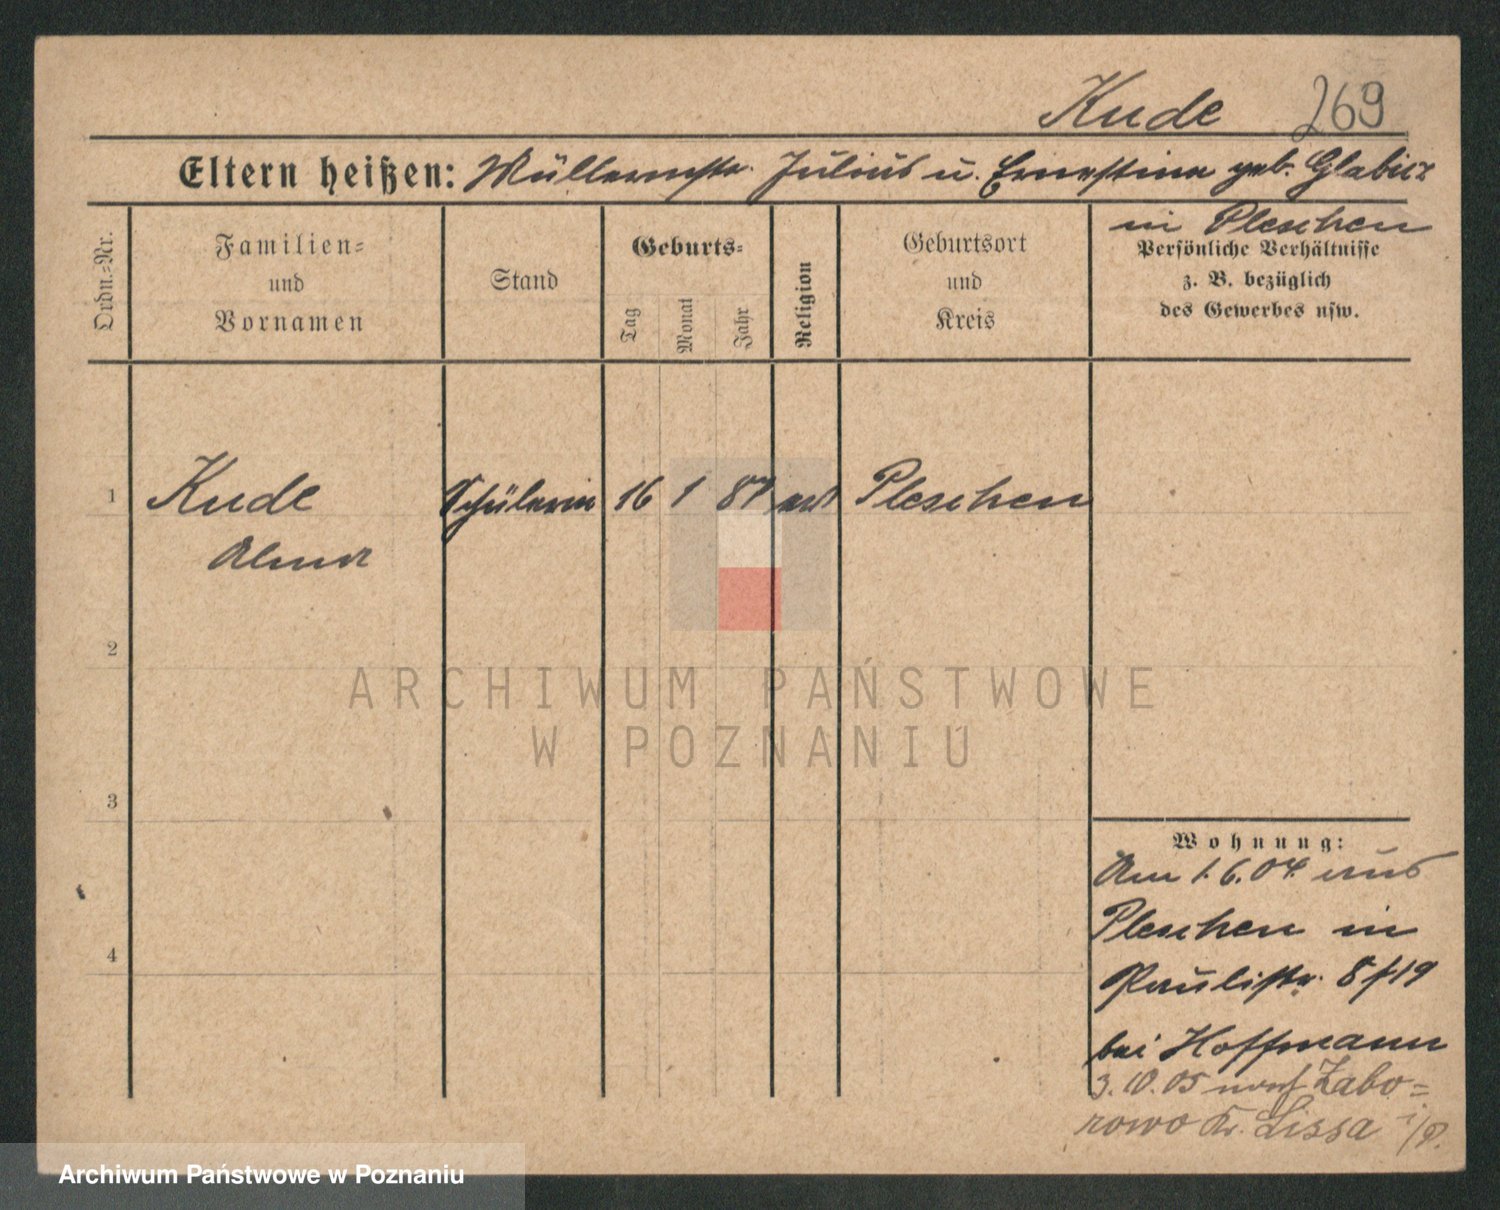 Kude 269
Eltern heißen: Müllermstr. Julius u. Ernestine geb. Glabisz
in Pleschen
Ordn.-Nr.
Familien-
und
Vornamen
Stand
Geburts-
Tag
Monat
Jahr
Religion
Geburtsort
und
Kreis
Persönliche Verhältnisse
z. B. bezüglich
des Gewerbes usw.
1 Kude Schülerin 16 1 87 Pleschen
Alma
2
ARCHIWUM PAŃSTWOWE
W POZNANIU
3
Wohnung:
Am 1.6.04. aus
Pleschen in
4
Paulistr. 8 f. 19
bei Hoffmann
3.10.05 nach Zabo-
rowo Kr. Lissa i/P.
Archiwum Państwowe w Poznaniu